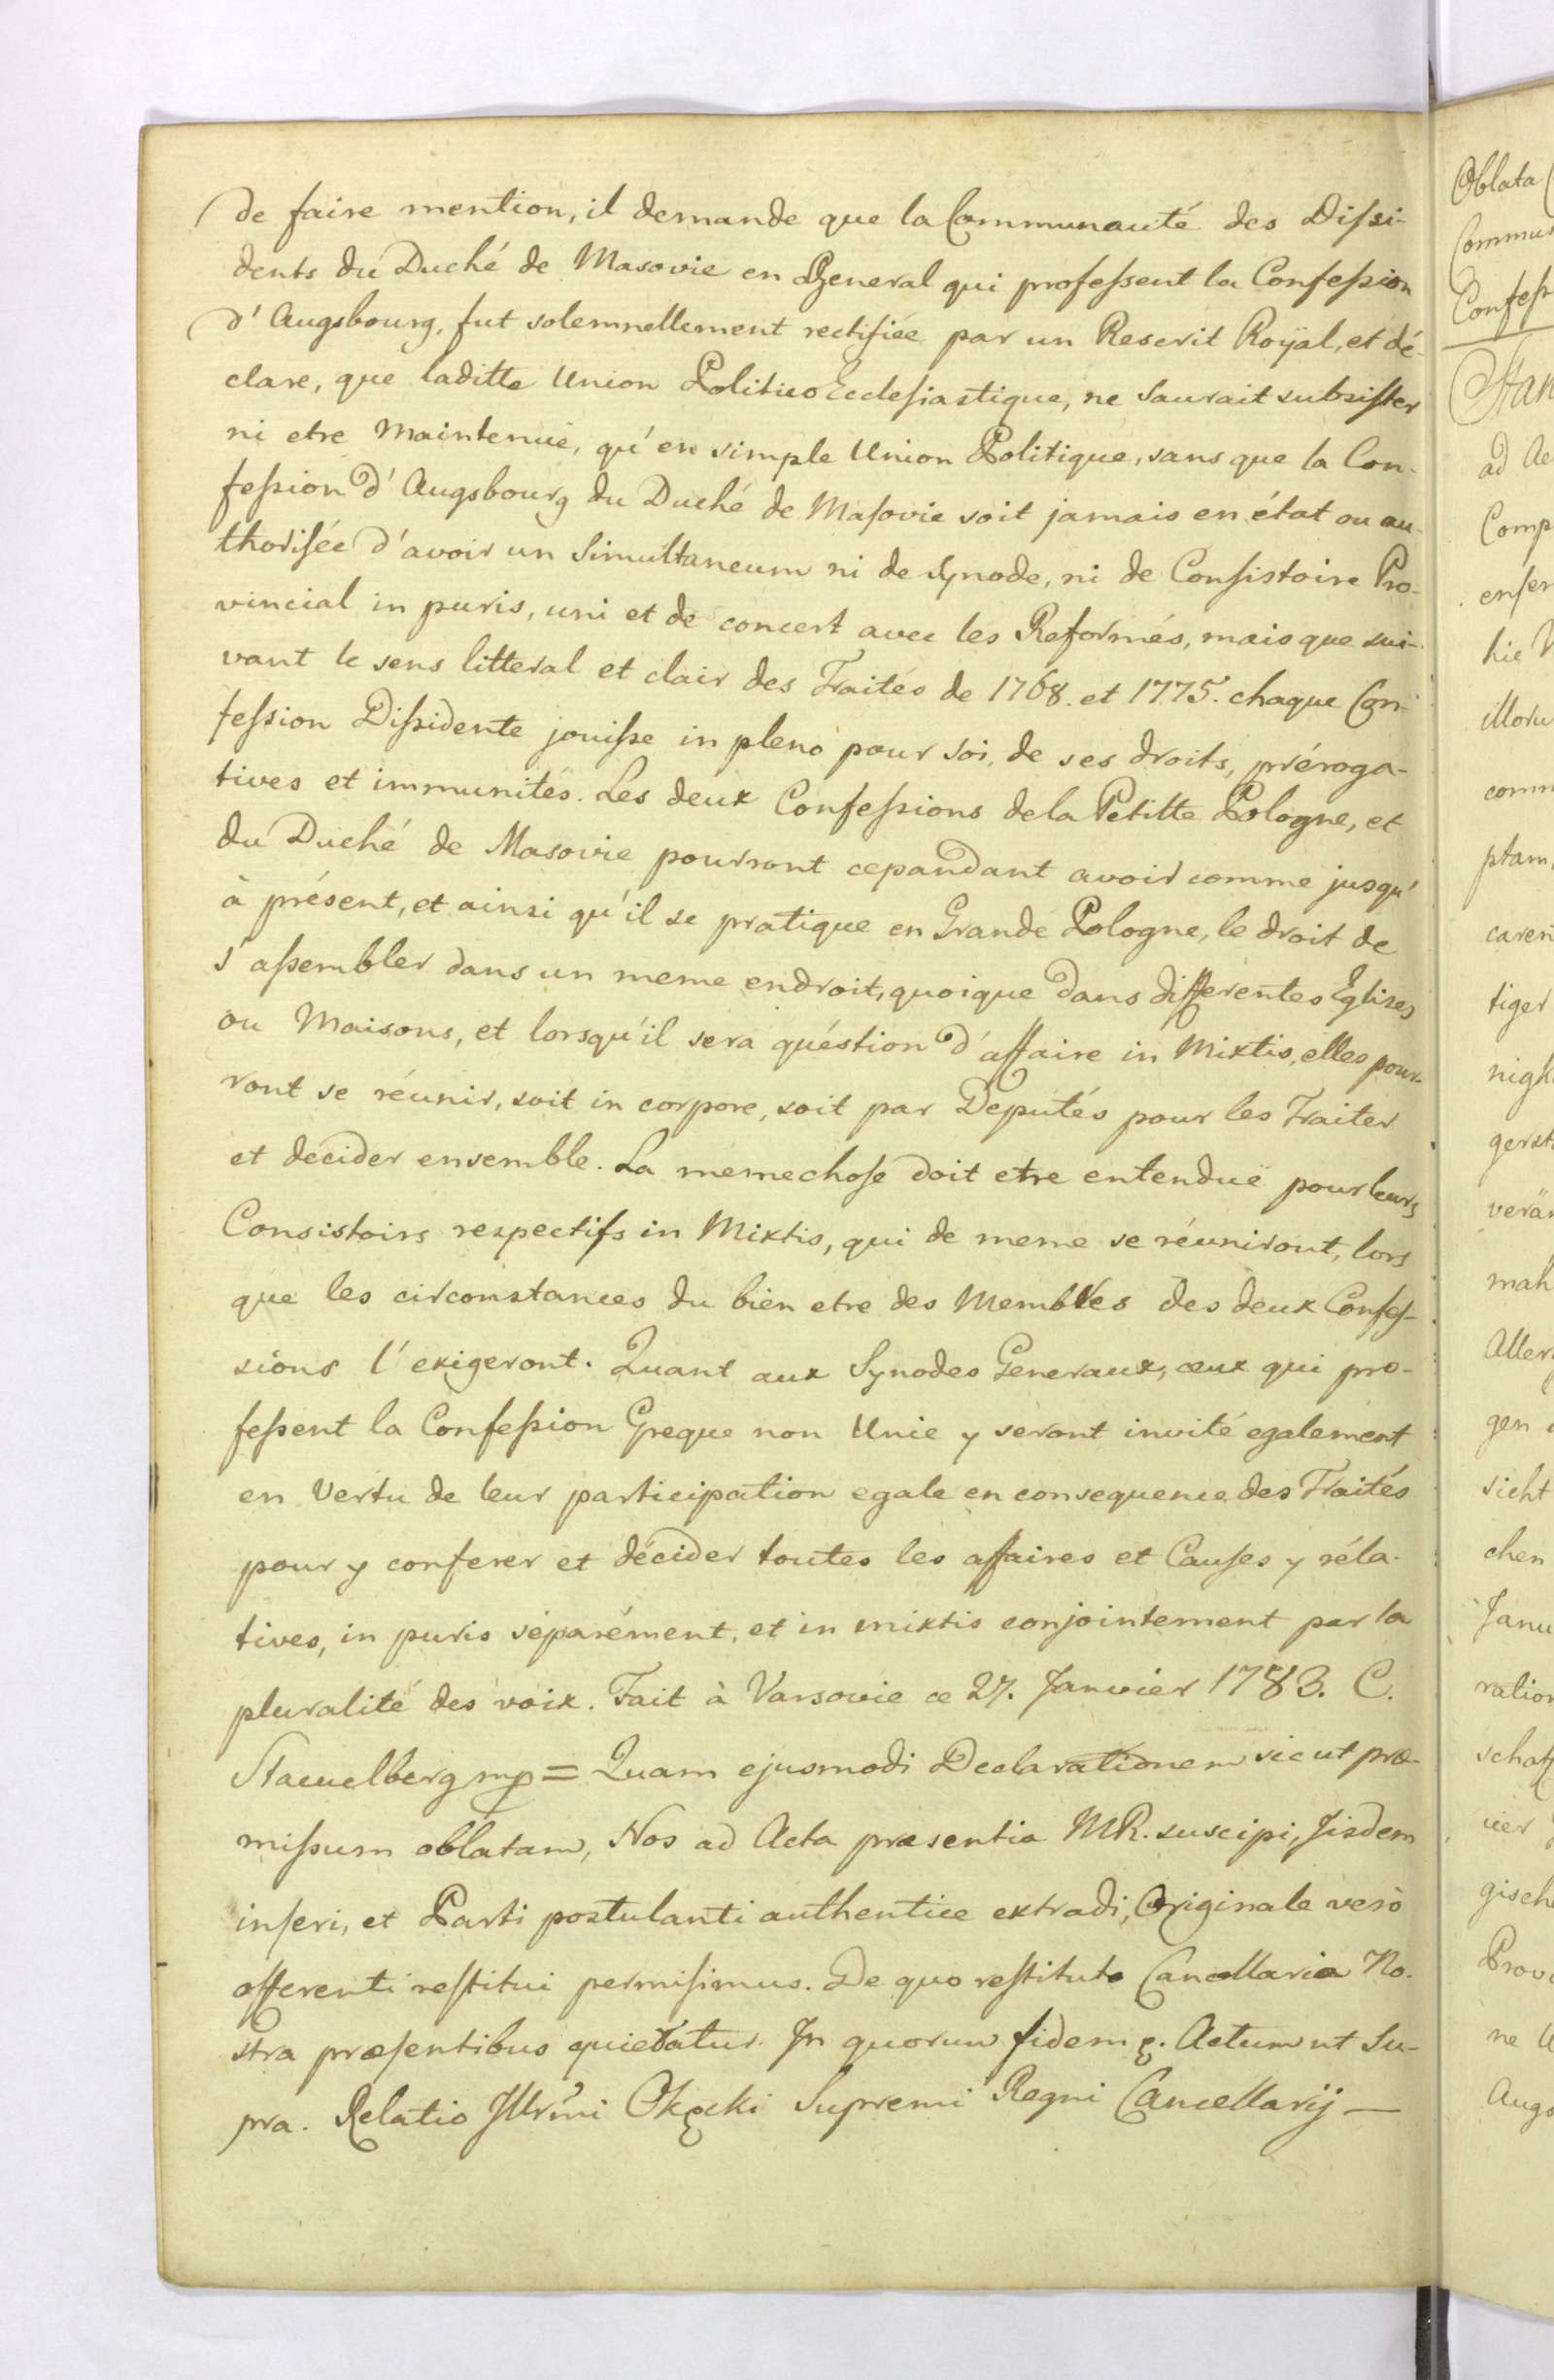 de faire mention, il demande que la Communauté des Dißi-
dents du Duché de Masovie en General qui profeßent la Confeßion
d'Augsbourg, fut solemnellement rectifiée par un Rescrit Roÿal, et dé-
clare, que laditte Union Politico Ecclesiastique, ne Saurait subsister
ni etre Maintenuë, qu'en simple Union Politique, sans que la Con-
feßion d'Augsbourg du Duché de Masovie soit jamais en état ou au-
thorisée d'avoir un Simultaneum ni de Synode, ni de Consistoire Pro-
vincial in puris, uni et de concert avec les Reformés, mais que sui-
vant le sens litteral et clair des Traités de 1768. et 1775. chaque Con-
feßion Dißidente jouiße in pleno pour soi, de ses droits, préroga-
tives et immunités. Les deux Confeßions de la Petitte Pologne, et
du Duché de Masovie pourront cepandant avoir comme jusqu'
à présent, et ainsi qu'il se pratique en Grande Pologne, le droit de
s'aßembler dans un meme endroit, quoique dans differentes Eglises
ou Maisons, et lorsqu'il sera quéstion d'affaire in Mixtis, elles pour-
ront se réunir, soit in corpore, soit par Deputés pour les Traiter
et decider ensemble. La meme chose doit etre entenduë pour leurs
Consistoirs respectifs in Mixtis, qui de meme se réuniront, lors
que les circonstances du bien etre des Membres des deux Confes-
sions l'exigeront. Quant aux Synodes Generaux, ceux qui pro-
feßent la Confeßion Greque non Unie y seront invité egalement
en Vertu de leur participation egale en consequence des Traités
pour y conferer et décider toutes les affaires et Causes y réla-
tives, in puris séparément, et in mixtis conjointement par la
pluralité des voix. Fait à Varsovie ce 27. Janvier 1783. C.
Stacuelberg mp = Quam ejusmodi Declarationem sicut præ-
mißum oblatam, Nos ad Acta præsentia MR. suscipi, Jisdem
inseri, et Parti postulanti authentice extradi, Originale verò
offerenti restitui permisimus. De quo restituto Cancellaria No-
stra præsentibus quietatur. In quorum fidem &. Actum ut Su-
pra. Relatio Jllrmi Okęcki Supremi Regni Cancellarij —
Oblata
Commu
Confeß
Stan
ad Ac
Comp
enser
hic
illoru
comm
ptam,
caren
tiger
nigk
gerst
verän
mah
Aller
gen
sicht
chen
Janu
ration
schaf
vier
gisch
Prov
ne
Augs